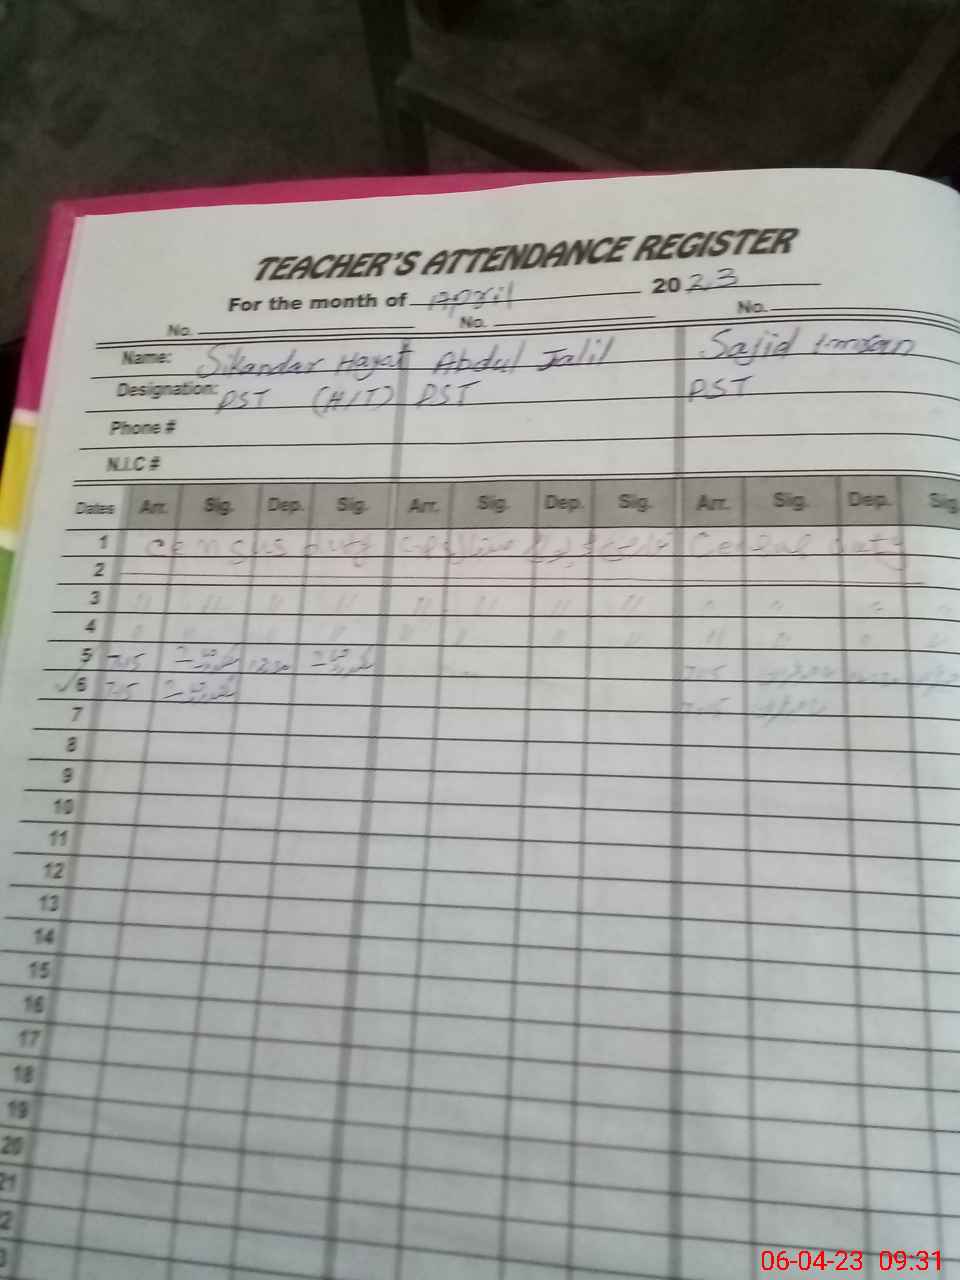 TEACHER'S ATTENDANCE REGISTER
For the month of April 2023
No. No. No.
Name: Sikandar Hayat Abdul Jalil Sajid Imran
Designation: PST (H/T) PST PST
Phone #
N.I.C #
Dates Arr. Sig. Dep. Sig. Arr. Sig. Dep. Sig. Arr. Sig. Dep. Sig.
1 Census duty duty
2
3 " " " " " " " " " " " "
4 " " " " " " " "
5 7:15 12:30 7:15
6 7:15 7:15
7
8
9
10
11
12
13
14
15
16
17
18
19
20
21
06-04-23 09:31